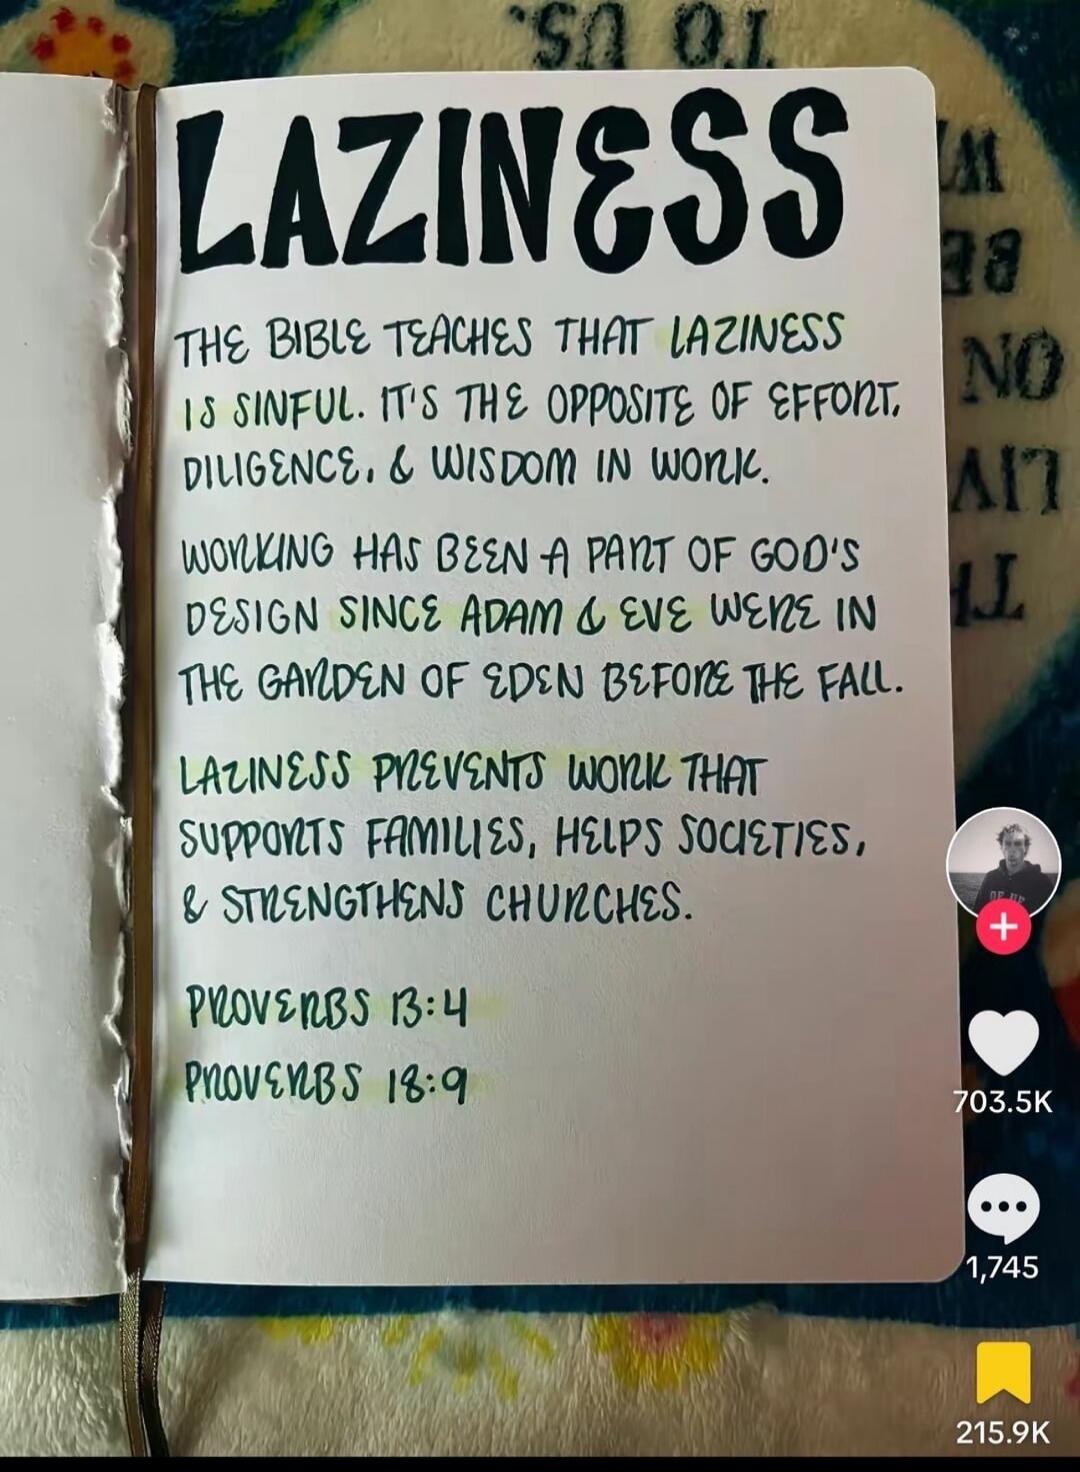 TO US.
LAZINESS
THE BIBLE TEACHES THAT LAZINESS
IS SINFUL. IT'S THE OPPOSITE OF EFFORT,
DILIGENCE, & WISDOM IN WORK.
WORKING HAS BEEN A PART OF GOD'S
DESIGN SINCE ADAM & EVE WERE IN
THE GARDEN OF EDEN BEFORE THE FALL.
LAZINESS PREVENTS WORK THAT
SUPPORTS FAMILIES, HELPS SOCIETIES,
& STRENGTHENS CHURCHES.
PROVERBS 13:4
PROVERBS 18:9
703.5K
1,745
215.9K